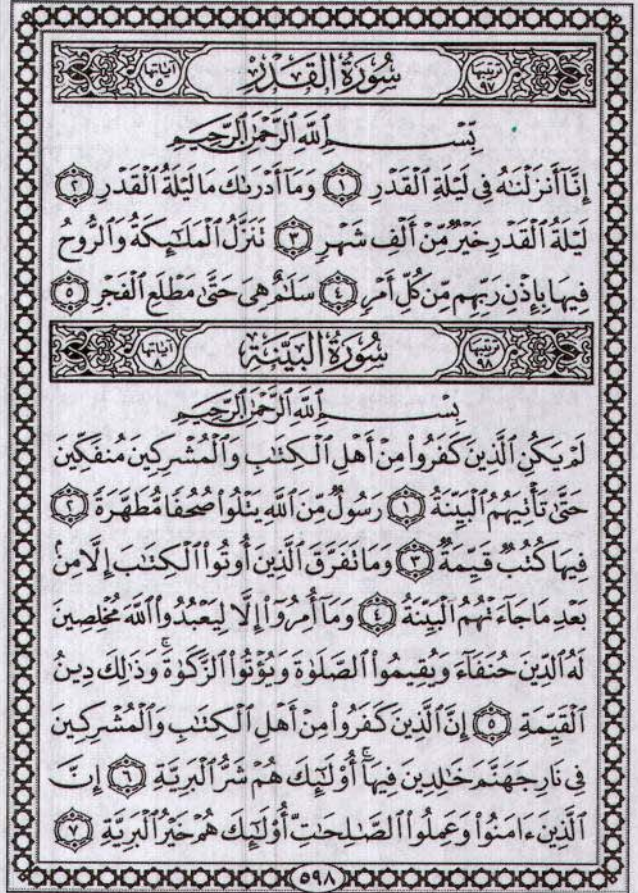 ترتيبها ٩٧ سُورَةُ القَدْرِ آياتها ٥
بِّسْمِ ٱللَّهِ ٱلرَّحْمَٰنِ ٱلرَّحِيمِ
إِنَّآ أَنزَلْنَٰهُ فِى لَيْلَةِ ٱلْقَدْرِ ١ وَمَآ أَدْرَىٰكَ مَا لَيْلَةُ ٱلْقَدْرِ ٢
لَيْلَةُ ٱلْقَدْرِ خَيْرٌ مِّنْ أَلْفِ شَهْرٍ ٣ تَنَزَّلُ ٱلْمَلَٰٓئِكَةُ وَٱلرُّوحُ
فِيهَا بِإِذْنِ رَبِّهِم مِّن كُلِّ أَمْرٍ ٤ سَلَٰمٌ هِىَ حَتَّىٰ مَطْلَعِ ٱلْفَجْرِ ٥
ترتيبها ٩٨ سُورَةُ البَيِّنَةِ آياتها ٨
بِسْمِ ٱللَّهِ ٱلرَّحْمَٰنِ ٱلرَّحِيمِ
لَمْ يَكُنِ ٱلَّذِينَ كَفَرُوا۟ مِنْ أَهْلِ ٱلْكِتَٰبِ وَٱلْمُشْرِكِينَ مُنفَكِّينَ
حَتَّىٰ تَأْتِيَهُمُ ٱلْبَيِّنَةُ ١ رَسُولٌ مِّنَ ٱللَّهِ يَتْلُوا۟ صُحُفًا مُّطَهَّرَةً ٢
فِيهَا كُتُبٌ قَيِّمَةٌ ٣ وَمَا تَفَرَّقَ ٱلَّذِينَ أُوتُوا۟ ٱلْكِتَٰبَ إِلَّا مِنۢ
بَعْدِ مَا جَآءَتْهُمُ ٱلْبَيِّنَةُ ٤ وَمَآ أُمِرُوٓا۟ إِلَّا لِيَعْبُدُوا۟ ٱللَّهَ مُخْلِصِينَ
لَهُ ٱلدِّينَ حُنَفَآءَ وَيُقِيمُوا۟ ٱلصَّلَوٰةَ وَيُؤْتُوا۟ ٱلزَّكَوٰةَ ۚ وَذَٰلِكَ دِينُ
ٱلْقَيِّمَةِ ٥ إِنَّ ٱلَّذِينَ كَفَرُوا۟ مِنْ أَهْلِ ٱلْكِتَٰبِ وَٱلْمُشْرِكِينَ
فِى نَارِ جَهَنَّمَ خَٰلِدِينَ فِيهَآ ۚ أُو۟لَٰٓئِكَ هُمْ شَرُّ ٱلْبَرِيَّةِ ٦ إِنَّ
ٱلَّذِينَ ءَامَنُوا۟ وَعَمِلُوا۟ ٱلصَّٰلِحَٰتِ أُو۟لَٰٓئِكَ هُمْ خَيْرُ ٱلْبَرِيَّةِ ٧
٥٩٨